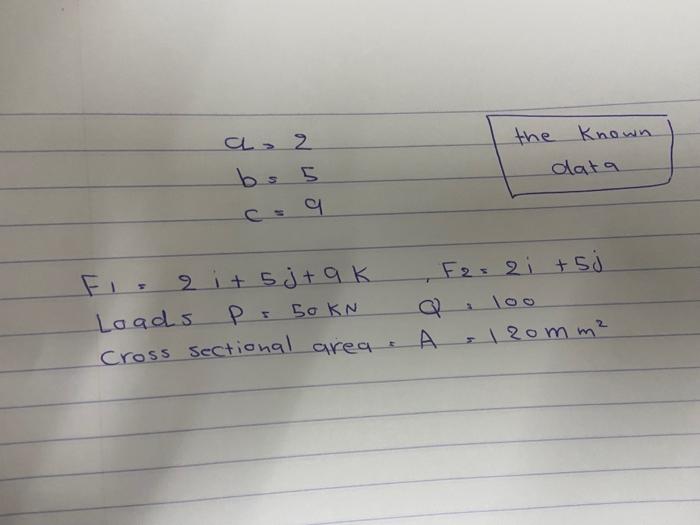 the Known
data
a = 2
b = 5
c = 9
F1 = 2i + 5j + 9k , F2 = 2i + 5j
Loads P = 50 KN Q = 100
Cross sectional area = A = 120 mm²